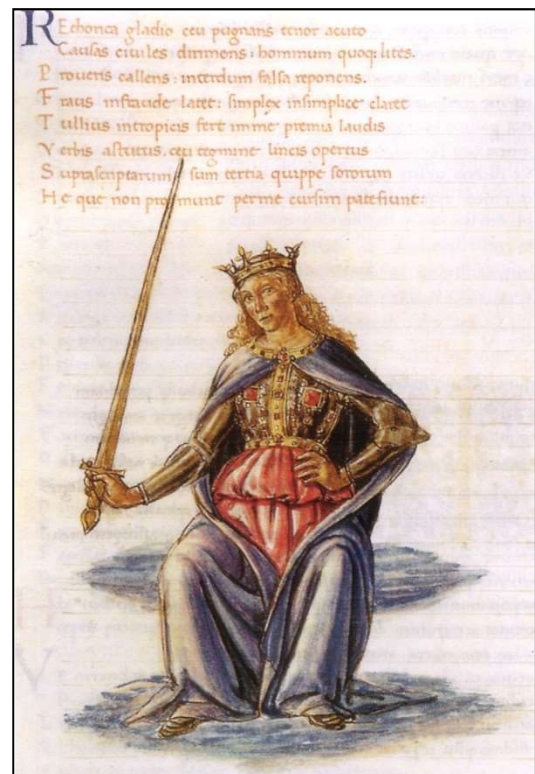 REthorica gladio ceu pugnans tenor acuto
Causas ciuiles dirimens: hominum quoq; lites.
Proueris callens: interdum falsa reponens.
Fraus infraude latet: simplex insimplice claret
Tullius intropicis fert imme premia laudis
Verbis astutus. ceu tegmine lincis opertus
Suprascriptarum sum tertia quippe sororum
He que non promunt perme cursim patefiunt: